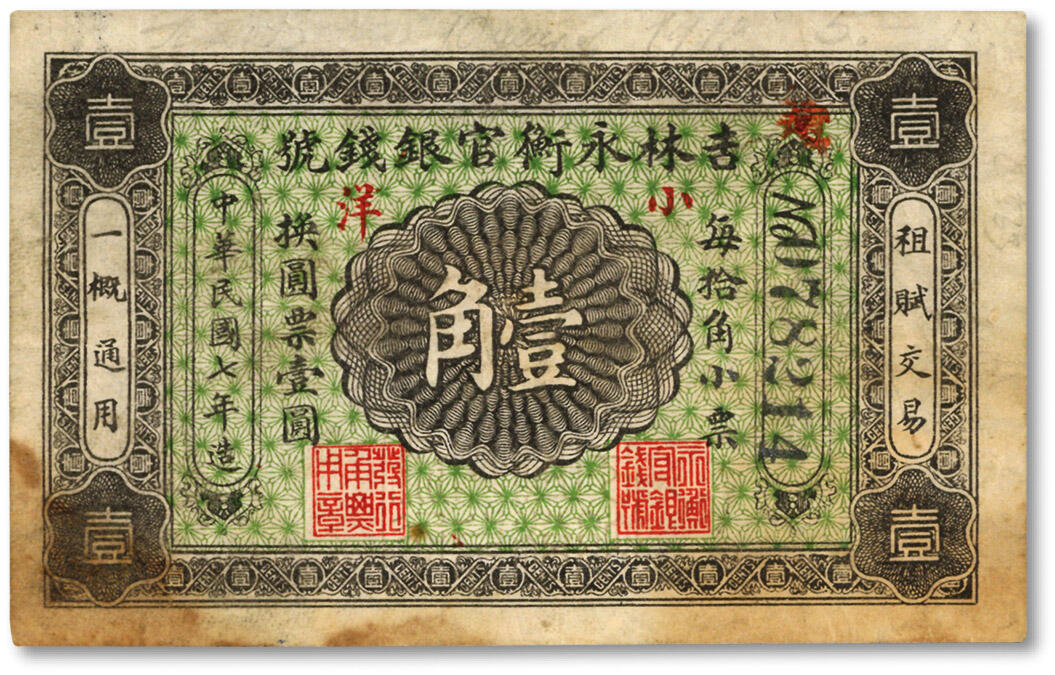 吉林永衡官銀錢號
小洋
壹角
每拾角小票
換圓票壹圓
中華民國七年造
租賦交易
一概通用
壹
壹
壹
壹
№78214
永衡官銀錢號
CENTS